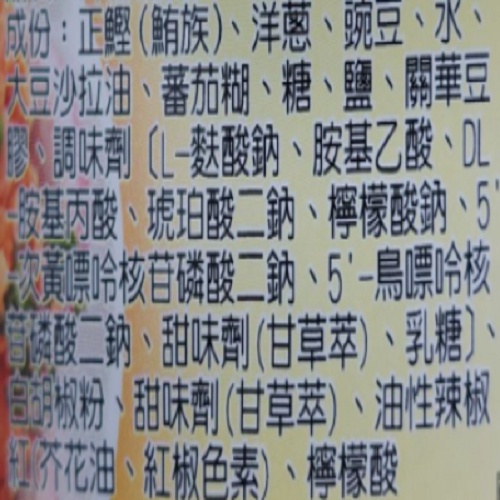 成份：正鰹(鮪族)、洋蔥、豌豆、水、
大豆沙拉油、蕃茄糊、糖、鹽、關華豆
膠、調味劑〔L-麩酸鈉、胺基乙酸、DL
-胺基丙酸、琥珀酸二鈉、檸檬酸鈉、5'
-次黃嘌呤核苷磷酸二鈉、5'-鳥嘌呤核
苷磷酸二鈉、甜味劑(甘草萃)、乳糖〕、
白胡椒粉、甜味劑(甘草萃)、油性辣椒
紅(芥花油、紅椒色素)、檸檬酸